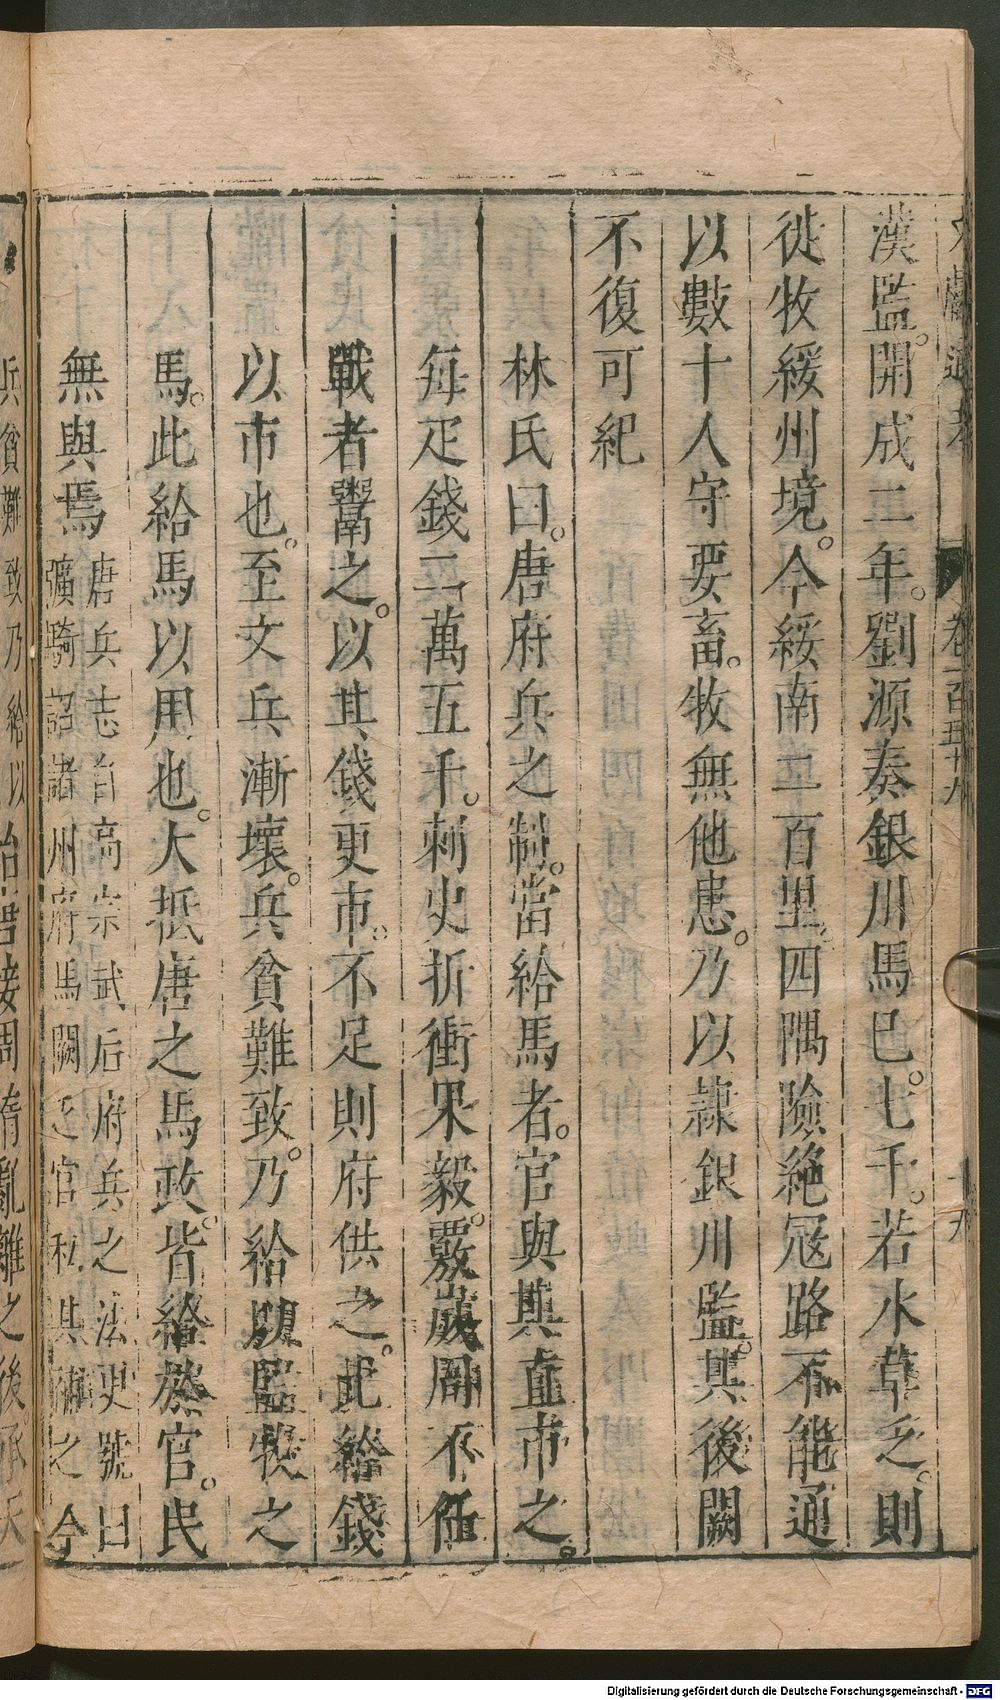 文獻通考 卷一百五十九 十九
漢監。開成二年。劉源奏銀川馬已七千。若水草乏。則
徙牧綏州境。今綏南二百里。四隅險絶。冦路不能通
以數十人守要畜。牧無他患。乃以隷銀川監。其後闕
不復可紀
林氏曰。唐府兵之制。當給馬者。官與其直市之。
每疋錢二萬五千。刺史折衝果毅。覈歲周不任
戰者鬻之。以其錢更市。不足則府供之。此給錢
以市也。至文兵漸壞。兵貧難致。乃給𩔖監牧之
馬。此給馬以用也。大抵唐之馬政。皆給於官。民
無與焉
唐兵志自高宗武后府兵之法更號曰
彍騎詔諸州府馬闕乏官私其補之今
兵貧難致乃給以
Digitalisierung gefördert durch die Deutsche Forschungsgemeinschaft - DFG